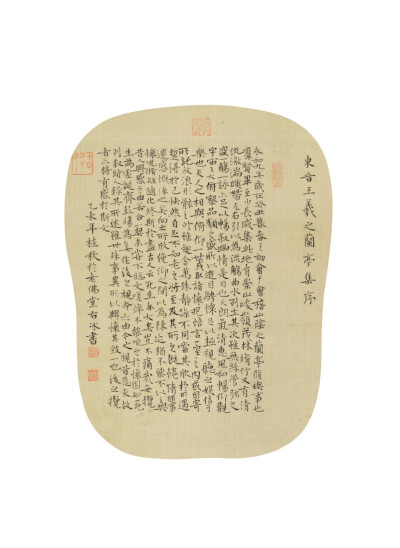 東晉王羲之蘭亭集序
永和九年歲在癸丑暮春之初會于會稽山陰之蘭亭脩禊事也
羣賢畢至少長咸集此地有崇山峻嶺茂林脩竹又有清
流激湍映帶左右引以為流觴曲水列坐其次雖無絲竹管弦之
盛一觴一詠亦足以暢敘幽情是日也天朗氣清惠風和暢仰觀
宇宙之大俯察品類之盛所以遊目騁懷足以極視聽之娛信可
樂也夫人之相與俯仰一世或取諸懷抱悟言一室之內或因寄
所託放浪形骸之外雖趣舍萬殊靜躁不同當其欣於所遇
暫得於己快然自足不知老之將至及其所之既倦情隨事
遷感慨係之矣向之所欣俛仰之間以為陳迹猶不能不以之興
懷況脩短隨化終期於盡古人云死生亦大矣豈不痛哉每攬
昔人興感之由若合一契未嘗不臨文嗟悼不能喻之於懷固知一死
生為虛誕齊彭殤為妄作後之視今亦由今之視昔悲夫故
列敘時人錄其所述雖世殊事異所以興懷其致一也後之攬
者亦將有感於斯文
乙未年桂秋於老佛堂右冰書